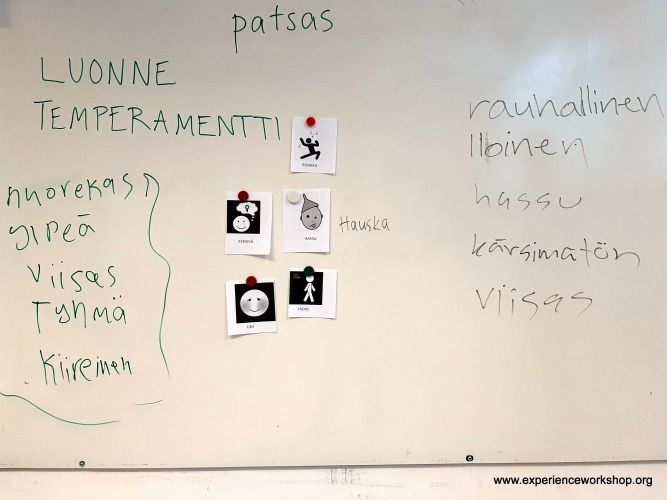 patsas
LUONNE
TEMPERAMENTTI
nuorekas
ylpeä
viisas
TYHMÄ
kiireinen
ROHKEA
KETTERÄ
HASSU
Hauska
UJO
rauhallinen
Iloinen
hassu
kärsimätön
viisas
www.experienceworkshop.org